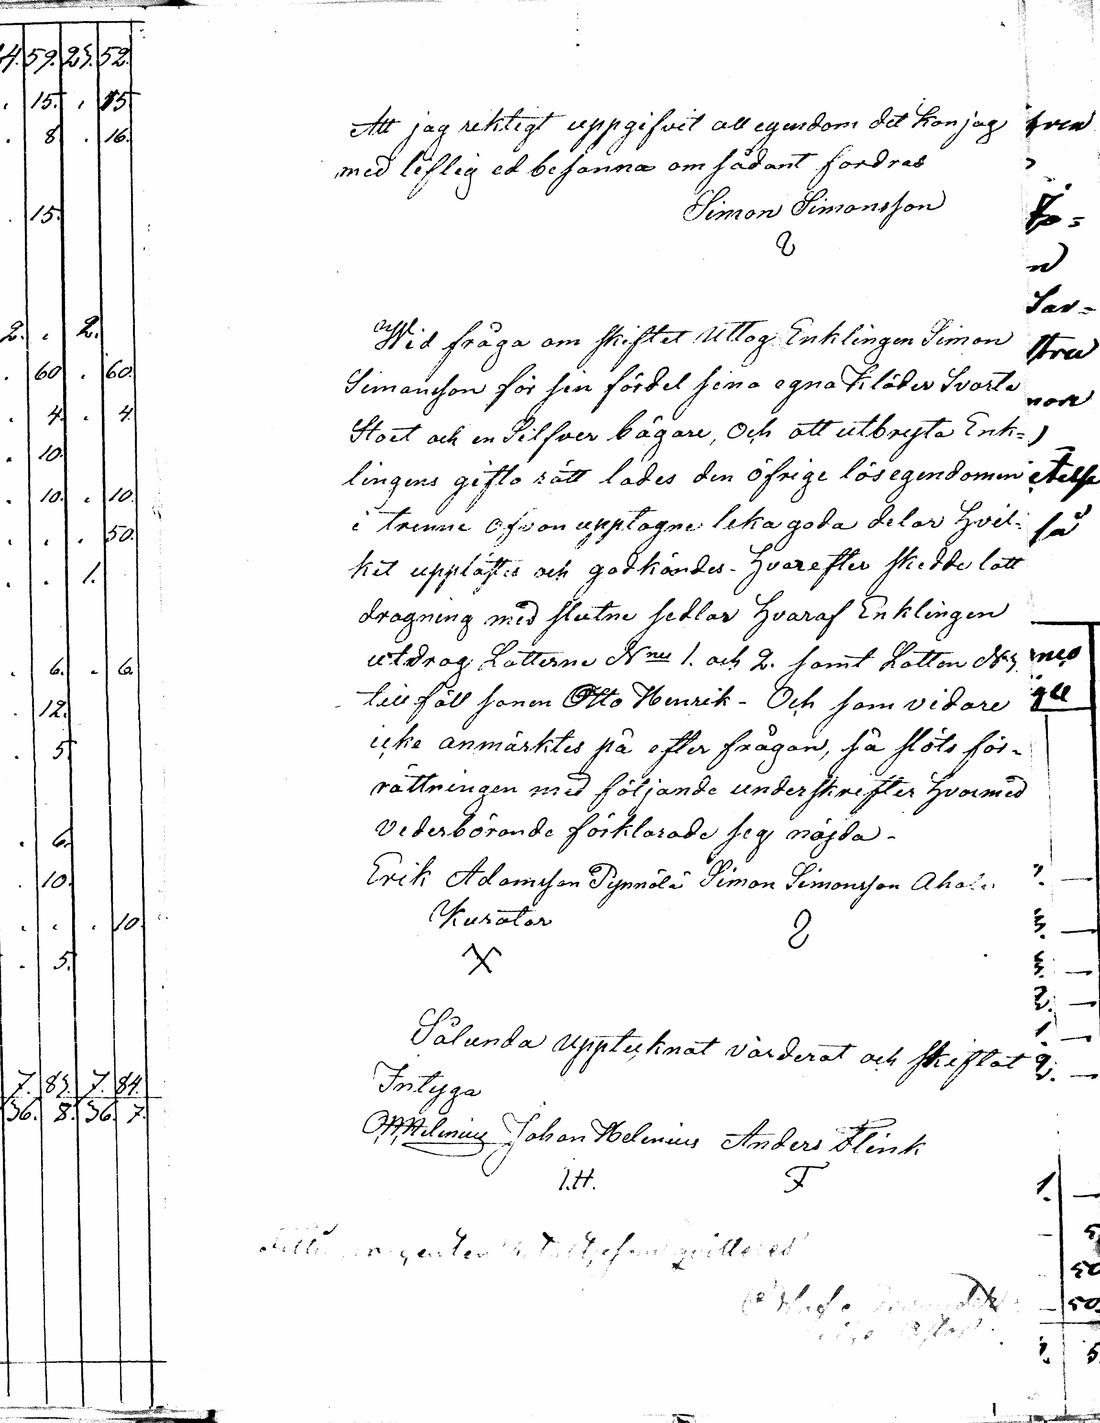 Att jag riktigt uppgifvit all egendom det kan jag
med liflig ed besanna om sådant fordras
Simon Simonsson
Wid fråga om skiftet Uttog Enklingen Simon
Simonsson för sin fördel sina egna Kläder Svarta
Stoet och en Silfver bägare, Och att utbryta Enk=
lingens gifto rätt lades den öfrige lösegendomen
i trenne ofvan upptagne lika goda delar hvil=
ket upplästes och godkändes. Hvarefter skedde lott
dragning med slutne sedlar hvaraf Enklingen
utdrog Lotterne Nris 1. och 2. samt Lotten No 3
tillföll sonen Otto Henrik - Och som vidare
icke anmärktes på efter frågan, så slöts för-
rättningen med följande underskrifter hvarmed
vederbörande förklarade sig nöjda -
Erik Adamsson Pynnölä Simon Simonsson
Kurator
X
Sålunda upptecknat värderat och skiftat
Intyga
Helenius Johan Helenius Anders Flink
I.H. F
4. 59. 25. 52.
. 15. . 15
. 8 . 16.
. 15.
2. . 2.
. 60 . 60.
. 4. . 4.
. 10.
. 10. . 10.
. . . 50.
. . 1.
. 6. . 6.
12.
. 5
. 6.
. 10.
. . . 10.
. 5.
7. 83. 7. 84.
36. 8. 36. 7.